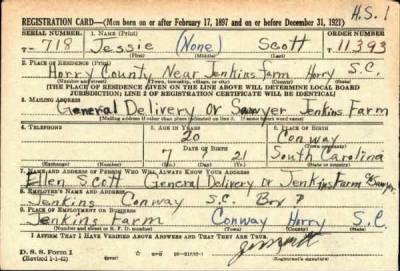 H.S. 1
REGISTRATION CARD—(Men born on or after February 17, 1897 and on or before December 31, 1921)
SERIAL NUMBER 1. NAME (Print) ORDER NUMBER
T- 718 Jessie (None) Scott T 11,393
(First) (Middle) (Last)
2. PLACE OF RESIDENCE (Print)
Horry County, Near Jenkins farm Horry S.C.
(Number and street) (Town, township, village, or city) (County) (State)
[THE PLACE OF RESIDENCE GIVEN ON THE LINE ABOVE WILL DETERMINE LOCAL BOARD
JURISDICTION; LINE 2 OF REGISTRATION CERTIFICATE WILL BE IDENTICAL]
3. MAILING ADDRESS
General Delivery or Sawyer Jenkins Farm
[Mailing address if other than place indicated on line 2. If same insert word same]
4. TELEPHONE 5. AGE IN YEARS 6. PLACE OF BIRTH
20 Conway
DATE OF BIRTH (Town or county)
7 21 South Carolina
(Exchange) (Number) (Mo.) (Day) (Yr.) (State or country)
7. NAME AND ADDRESS OF PERSON WHO WILL ALWAYS KNOW YOUR ADDRESS
Ellen Scott General Delivery or Jenkins Farm % Sawyer
8. EMPLOYER'S NAME AND ADDRESS
Jenkins Conway S.C. Box
9. PLACE OF EMPLOYMENT OR BUSINESS
Jenkins Farm Conway Horry S.C.
(Number and street or R. F. D. number) (Town) (County) (State)
I AFFIRM THAT I HAVE VERIFIED ABOVE ANSWERS AND THAT THEY ARE TRUE.
D. S. S. Form 1
(Revised 1-1-42) GPO